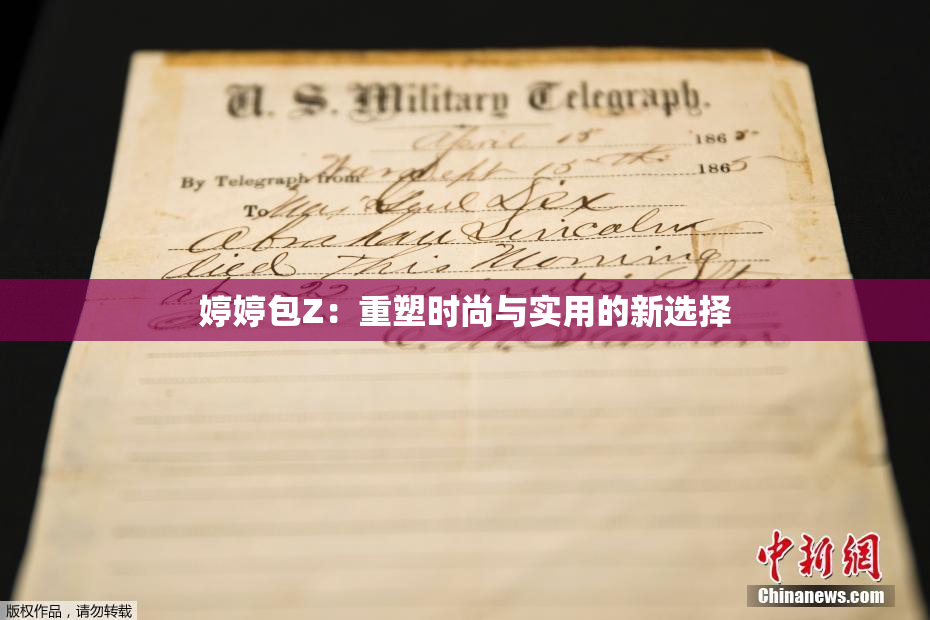 U. S. Military Telegraph.
April 15 1865
By Telegraph from War Dept 15th 1865
To Maj Genl Dix
Abraham Lincoln
died This Morning
at 22 minutes after
婷婷包Z：重塑时尚与实用的新选择
中新网
Chinanews.com
版权作品，请勿转载